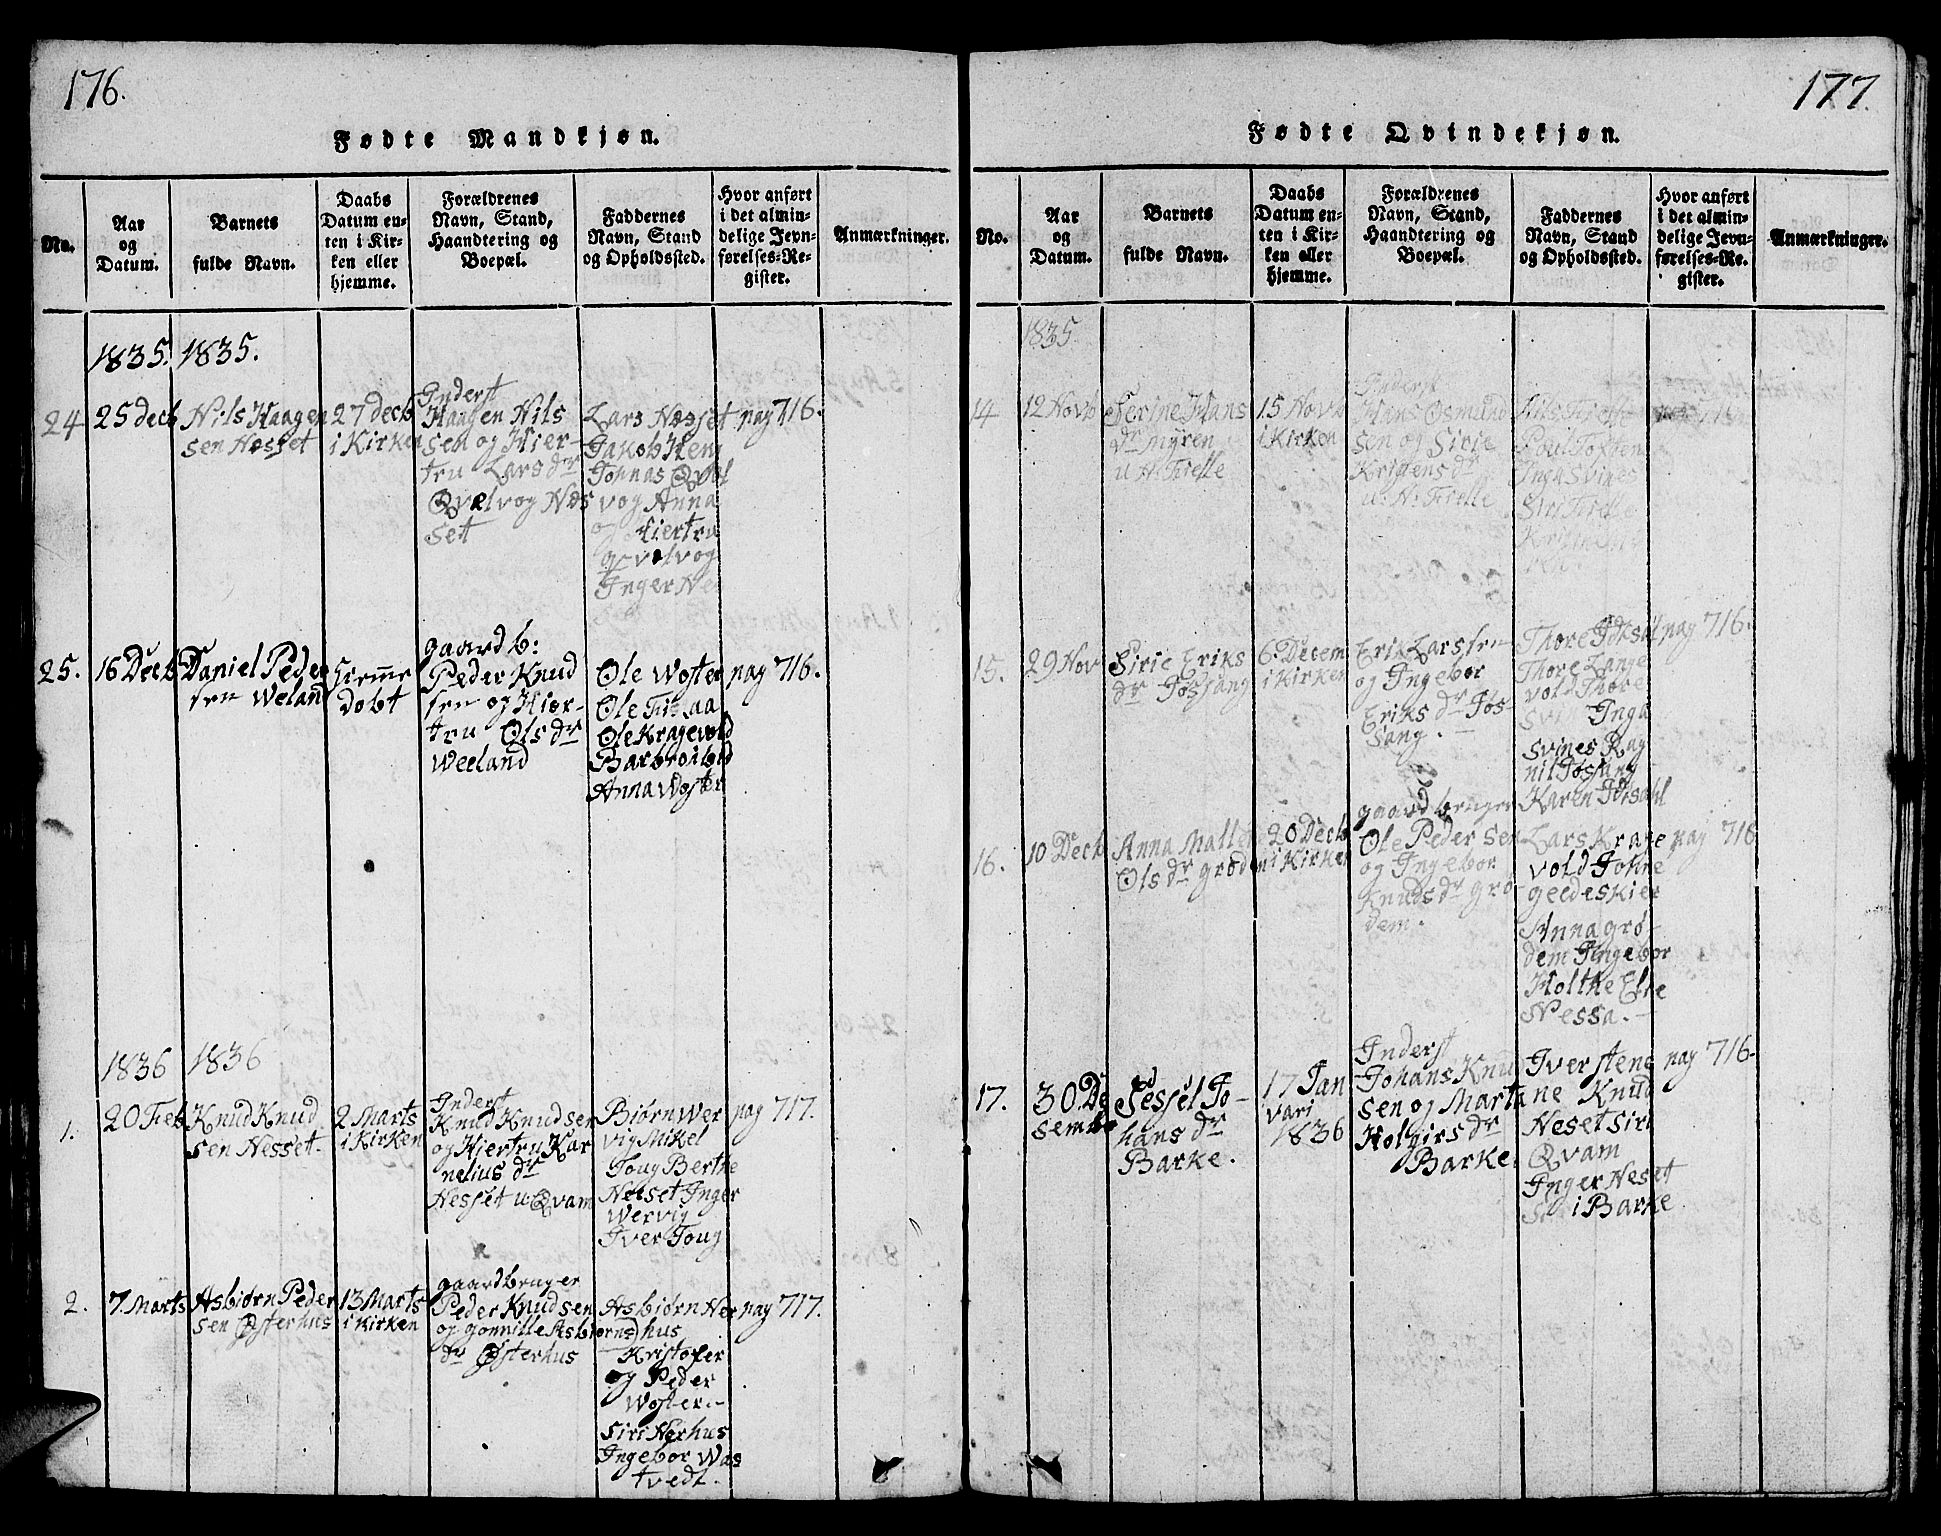 176.
Fødte Mandkjøn.
No.
Aar
og
Datum.
Barnets
fulde Navn.
Daabs
Datum en-
ten i Kir-
ken eller
hjemme.
Forældrenes
Navn, Stand,
Haandtering og
Boepæl.
Faddernes
Navn, Stand
og Opholdssted.
Hvor anført
i det almin-
delige Jevn-
førelses-Re-
gister.
Anmærkninger.
1835. 1835.
24
25 Decb
Nils Haagen
sen Næsset
27 Decb
i Kirken
Inderst
Haagen Nils
sen og Hier-
tru Lars dr
Qvælvog Næs
set
Lars Næsset
Jakob Hem
Johnas Qvæl
vog Anna
og Hiertru
qvælvog
Inger Næ
pag 716.
25.
16 Decb
Daniel Peder
sen Weland
Hieme
dobt
gaardb:
Peder Knud
sen og Hior-
tru Ols dr
Weeland
Ole Woster
Ole
Ole Kragewold
Barbro ibid
Anna Woster
pag 716.
1836 1836
1.
20 Feb
Knud Knud
sen Nesset.
2 Marts
i Kirken
Inderst
Knud Knudsen
og Hjertru Kar
nelius dr
Nesset u: Qvam
Bjørn Wer
vig Mikel
Toug Berthe
Neset Inger
Wervig
Iver Toug
pag 717.
2.
7 Marts
Asbiørn Peder
sen Østerhus
13 Marts
i Kirken
gaardbruger
Peder Knudsen
og gonnille Asbiørns
dr Østerhus
Asbiørn Ner
hus
Kristofer
og Peder
Woster.-
Siri Nerhus
Ingebor Was
tvedt.
pag 717.
177.
Fødte Qvindekjøn.
No.
Aar
og
Datum.
Barnets
fulde Navn.
Daabs
Datum en-
ten i Kir-
ken eller
hjemme.
Forældrenes
Navn, Stand,
Haandtering og
Boepæl.
Faddernes
Navn, Stand
og Opholdssted.
Hvor anført
i det almin-
delige Jevn-
førelses-Re-
gister.
Anmærkninger.
1835.
14
12 Novb
Serine Hans
dr Myren
u. H. Fielle
15 Novb
i Kirken
Inderst
Hans Osmund
sen og Sirie
dr
u. H: Fielle
Nils
Poul Toften
Inga Svines
Siri
15.
29 Nov
Sirie Eriks
dr Jøssang
6. Decem
i Kirken
Erik Larssen
og Ingebor
Eriks dr Jøs-
sang.
Thore Idtsøl
Thore Lange
vold Thore
Inga
Svines Rag
nil Jøssang
Karen Idtsahl
pag 716.
16.
10 Decb
Anna Malle
Ols dr grødem
20 Decb
i Kirken
gaardbruger
Ole Peder sen
og Ingebor
Knuds dr grø-
dem.
Lars Krage
vold Johne
geedeskier
Anna grø-
dem Ingebor
Holthe Else
Nessa.-
pag 716
17.
30. De
sember
Sessel Jo-
hans dr
Barke.
17 Jan
vari
1836
Inderst
Johans Knu
sen og Marta
Holgirs dr
Barke.
Iver stene
ne Knud
Neset Siri
Qvam
Inger Neset
i Barke
pag 716-